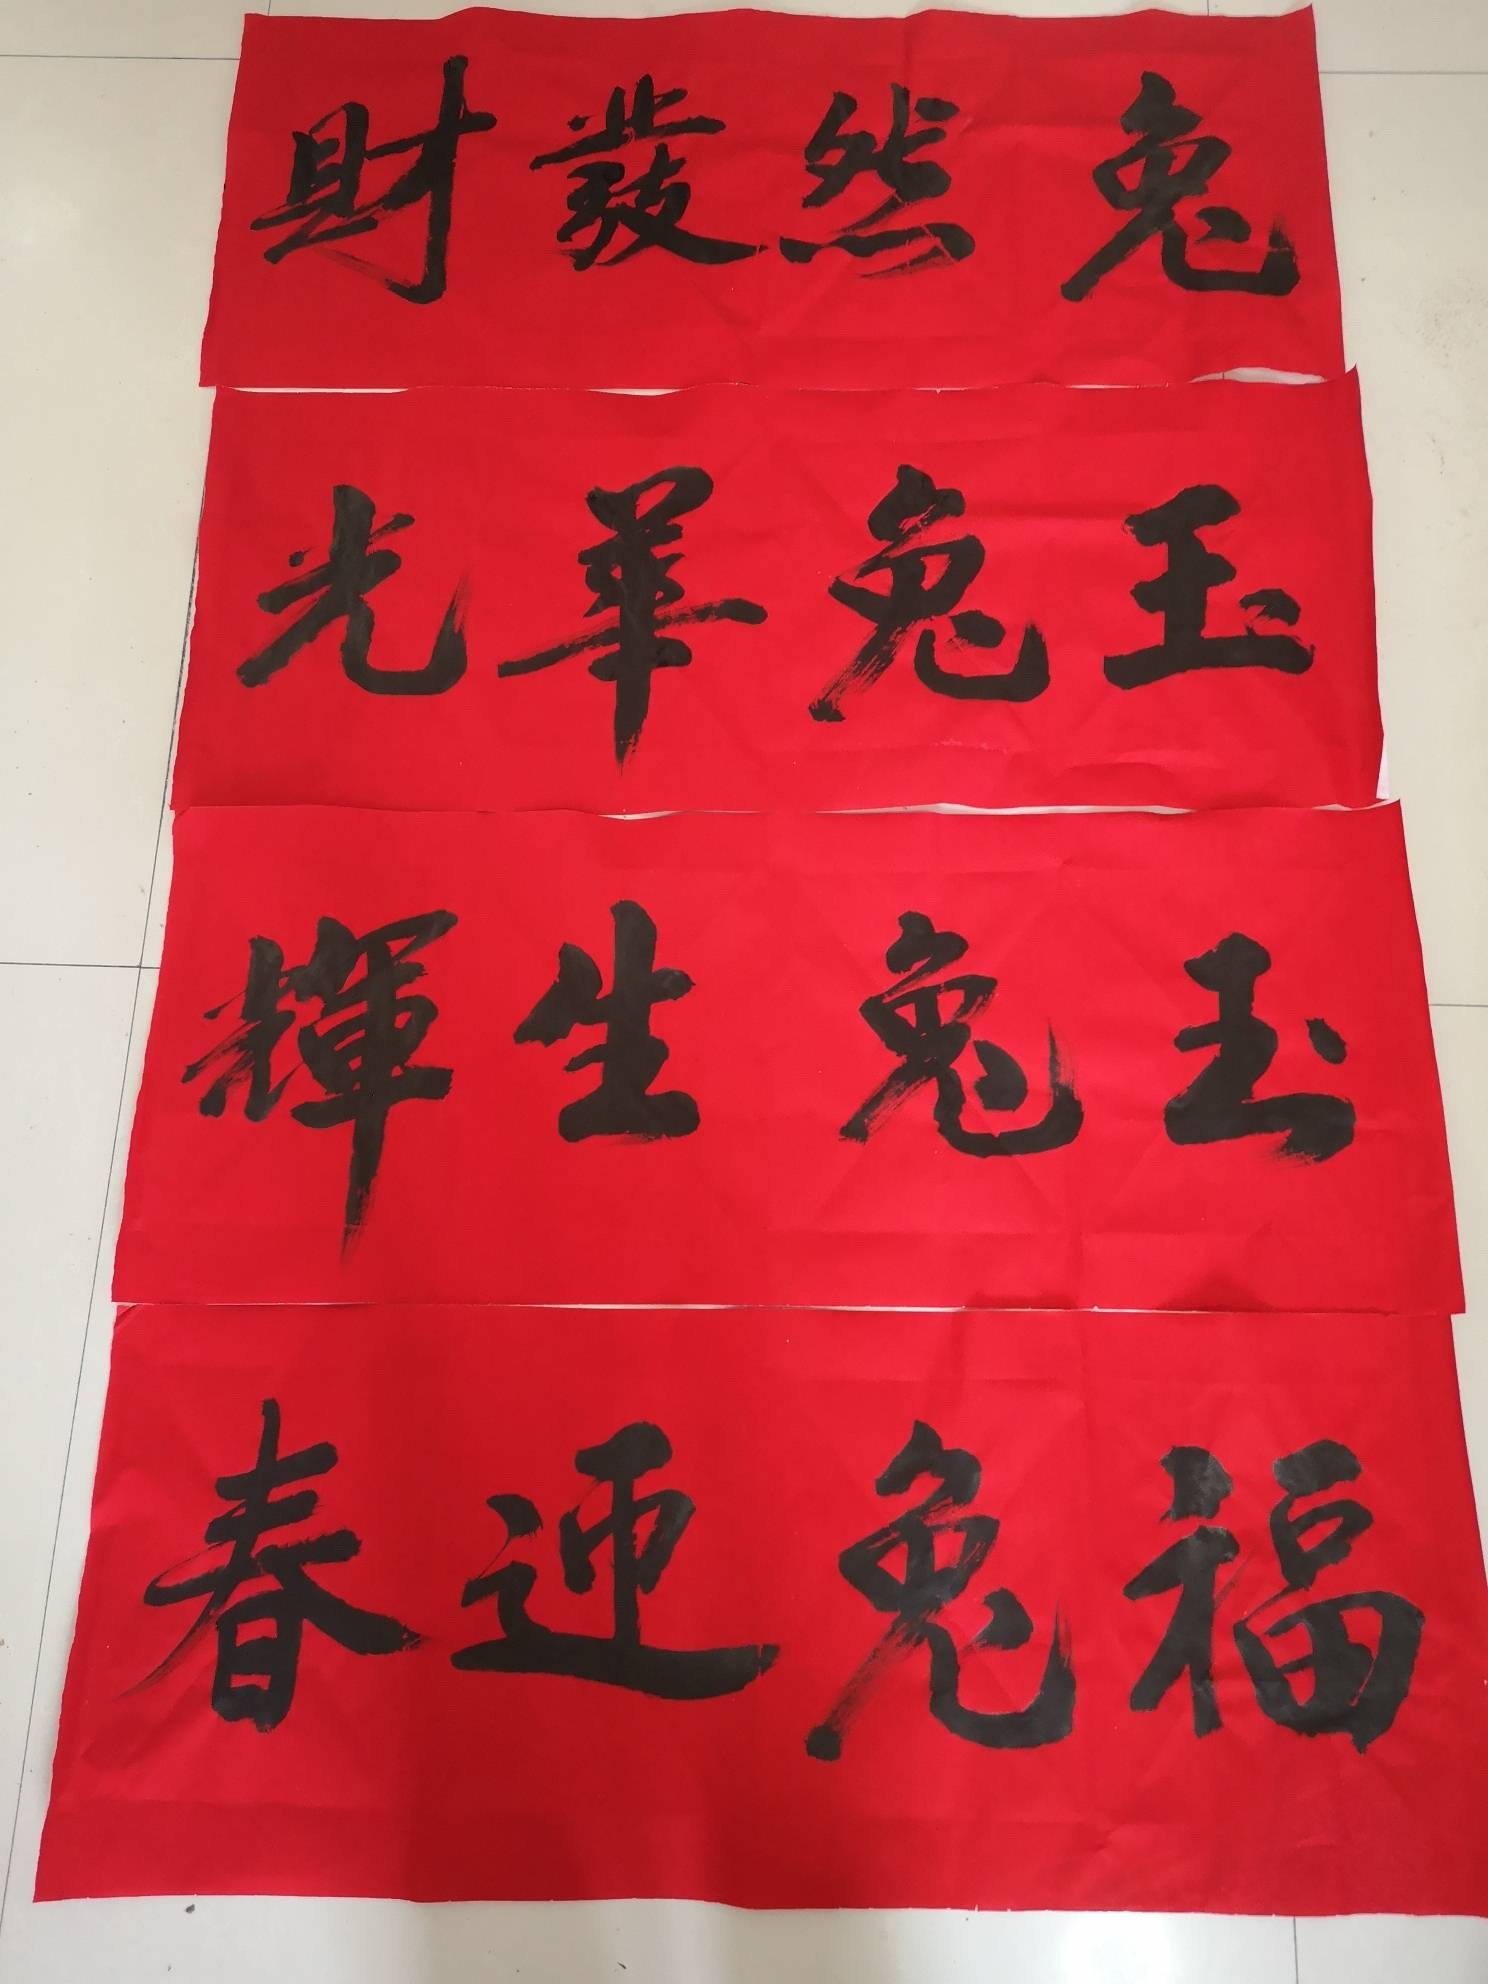 兔然發財
玉兔華光
玉兔生輝
福兔迎春